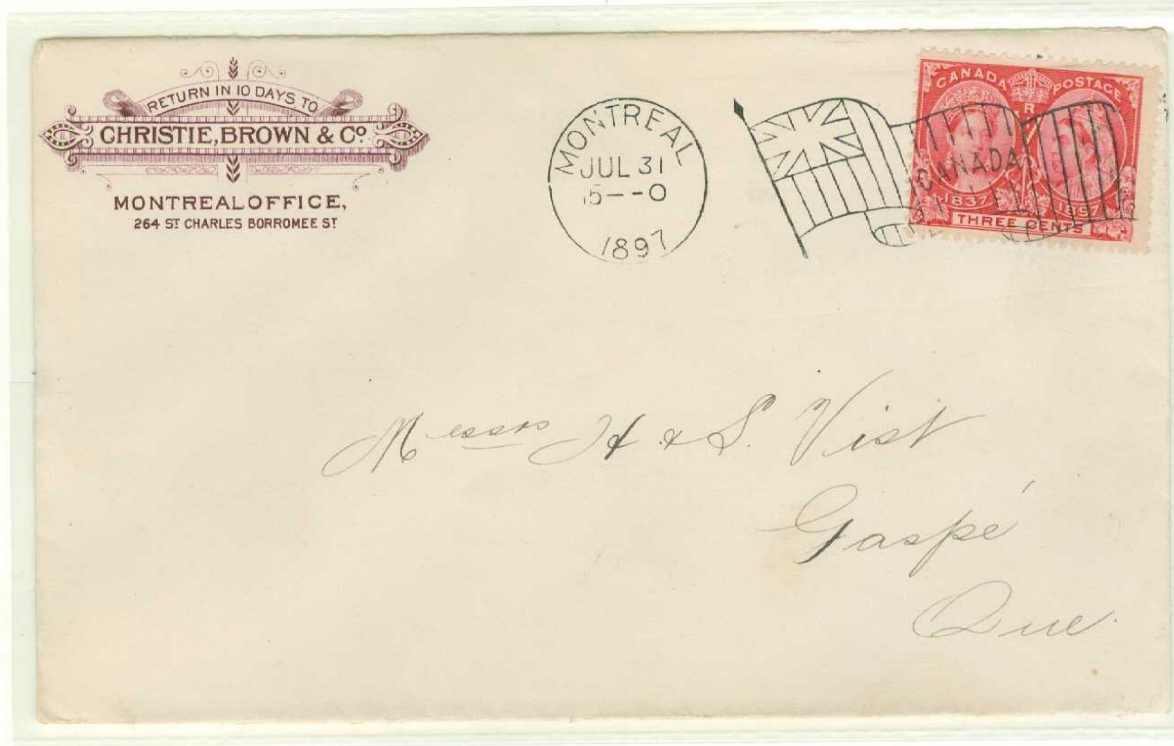 RETURN IN 10 DAYS TO
CHRISTIE, BROWN & Co.
MONTREAL OFFICE,
264 ST CHARLES BORROMEE ST
MONTREAL
JUL 31
15--0
1897
CANADA POSTAGE
R
CANADA
1837 1897
THREE CENTS
Messrs H. & S. Vist
Gaspé
Que.